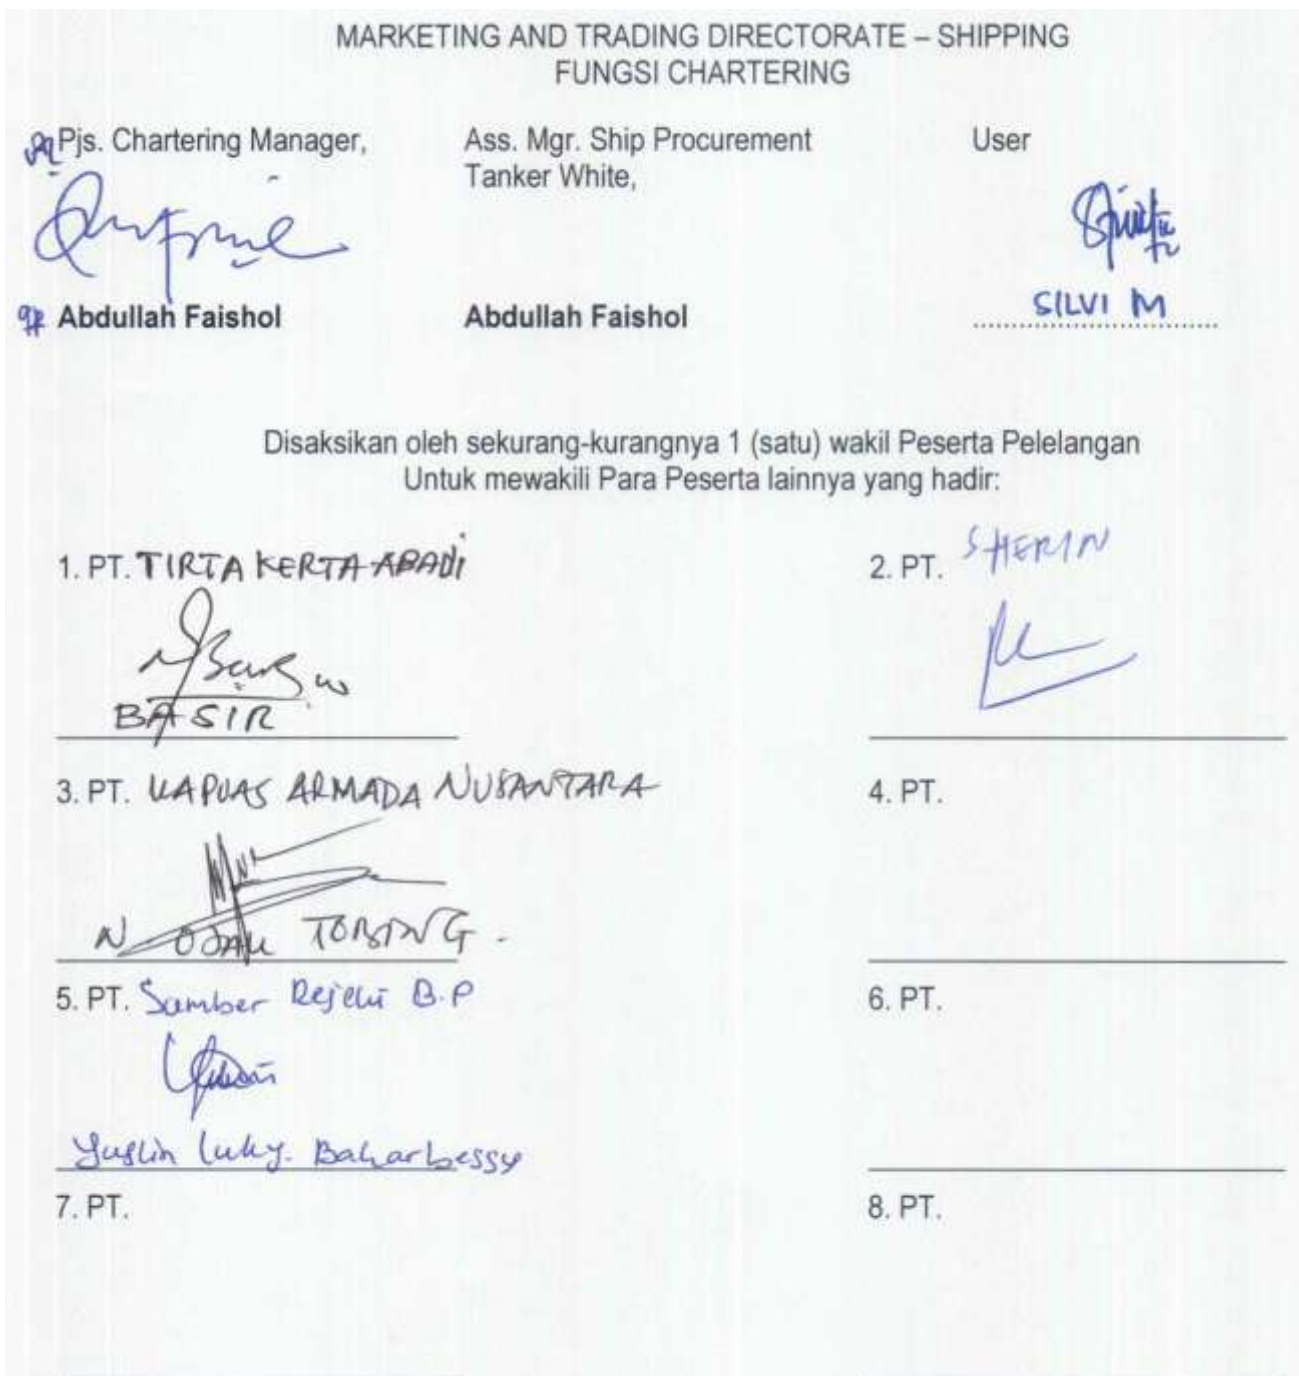 MARKETING AND TRADING DIRECTORATE – SHIPPING
FUNGSI CHARTERING
Pjs. Chartering Manager, Ass. Mgr. Ship Procurement User
Tanker White,
SILVI M
Abdullah Faishol Abdullah Faishol
Disaksikan oleh sekurang-kurangnya 1 (satu) wakil Peserta Pelelangan
Untuk mewakili Para Peserta lainnya yang hadir:
1. PT. TIRTA KERTA ABADi
2. PT. SHERIN
BASIR
3. PT. KAPUAS ARMADA NUSANTARA
4. PT.
N. ODAK TOBING.
5. PT. Sumber Rejeki B.P
6. PT.
Yuslin Luky. Baharbessy
7. PT.
8. PT.